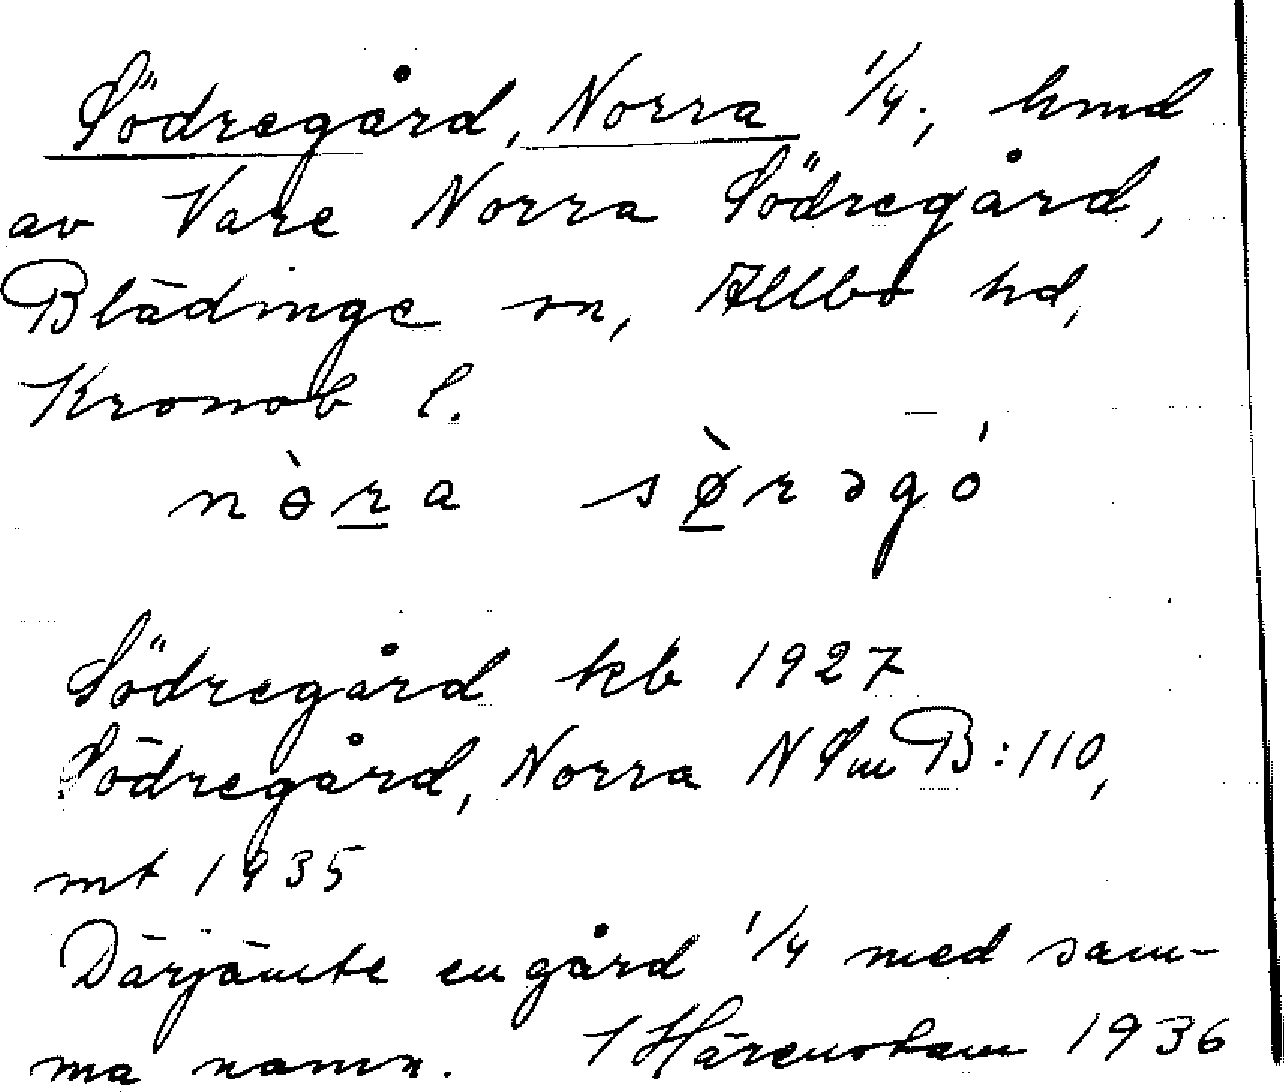 Södregård, Norra 1/4; hmd
av Vare Norra Södregård,
Blädinge sn, Allbo hd,
Kronob l.
nɵ̀ra sø̀rəgó
Södregård kb 1927
Södregård, Norra N Sm B:110,
mt 1935
Därjämte en gård 1/4 med sam-
ma namn. 1936